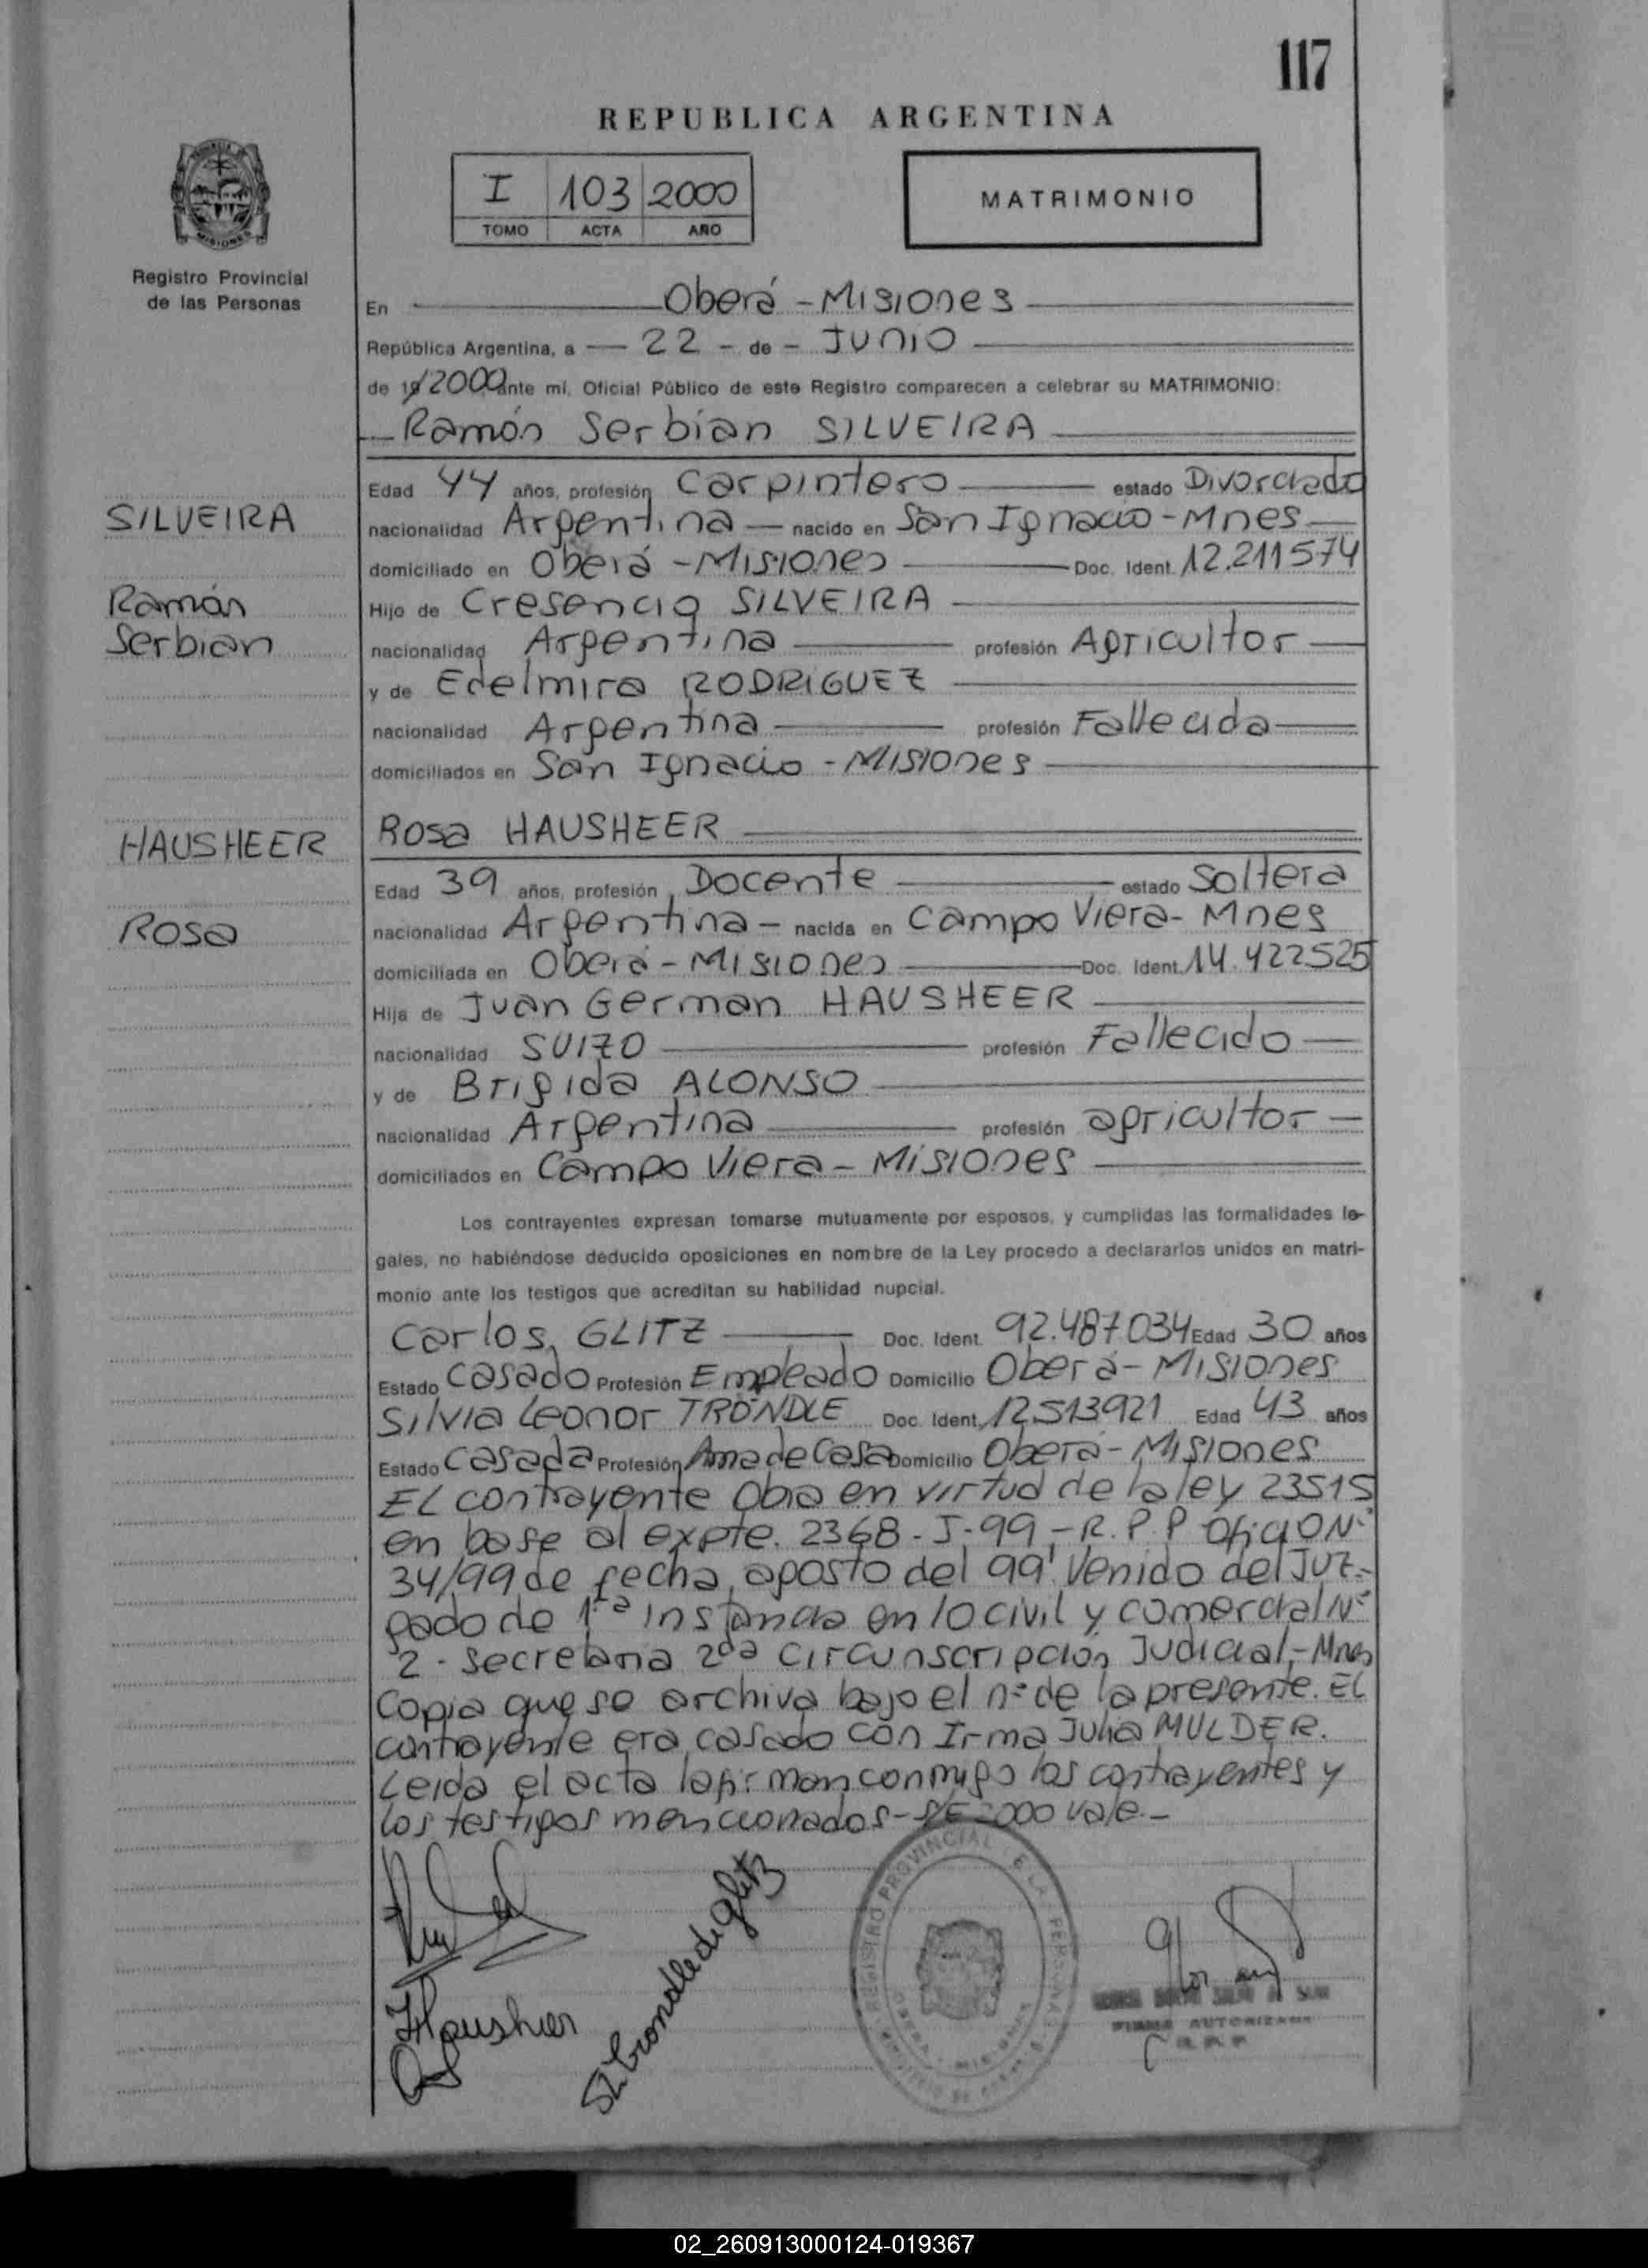 117
REPUBLICA ARGENTINA
I 103 2000
TOMO ACTA AÑO
MATRIMONIO
MISIONES
Registro Provincial
de las Personas
En Oberá - Misiones
República Argentina, a 22 - de - Junio
de 19 2000 ante mí, Oficial Público de este Registro comparecen a celebrar su MATRIMONIO:
Ramón Serbian SILVEIRA
Edad 44 años, profesión Carpintero estado Divorciado
SILVEIRA
nacionalidad Argentina nacido en San Ignacio - Mnes
domiciliado en Oberá - Misiones Doc. Ident. 12.211574
Ramón
Hijo de Cresencio SILVEIRA
Serbian
nacionalidad Argentina profesión Agricultor
y de Edelmira RODRIGUEZ
nacionalidad Argentina profesión Fallecida
domiciliados en San Ignacio - Misiones
HAUSHEER
Rosa HAUSHEER
Edad 39 años, profesión Docente estado Soltera
Rosa
nacionalidad Argentina - nacida en Campo Viera - Mnes
domiciliada en Oberá - Misiones Doc. Ident. 14.422525
Hija de Juan German HAUSHEER
nacionalidad SUIZO profesión Fallecido
y de Brigida ALONSO
nacionalidad Argentina profesión agricultor
domiciliados en Campo Viera - Misiones
Los contrayentes expresan tomarse mutuamente por esposos, y cumplidas las formalidades le-
gales, no habiéndose deducido oposiciones en nombre de la Ley procedo a declararlos unidos en matri-
monio ante los testigos que acreditan su habilidad nupcial.
Carlos, GLITZ Doc. Ident. 92.487034 Edad 30 años
Estado Casado Profesión Empleado Domicilio Oberá - Misiones
Silvia Leonor TRÖNDLE Doc. Ident. 12513921 Edad 43 años
Estado Casada Profesión Ama de Casa Domicilio Oberá - Misiones
EL contrayente obra en virtud de la ley 23515
en base al expte. 2368 - J - 99 - R. P. P Oficio N°
34/99 de fecha, agosto del 99' Venido del Juz-
gado de 1ra instancia en lo civil y comercial N°
2 - secretaria 2da circunscripción Judicial - Mnes
copia que se archiva bajo el n° de la presente. EL
contrayente era casado con Irma Julia MULDER.
Leida el acta la firman conmigo los contrayentes y
los testigos mencionados - DE 2000 vale. -
Hausheer
S L Trondle di Glitz
REGISTRO PROVINCIAL DE LAS PERSONAS
FIRMA AUTORIZADA
02_260913000124-019367